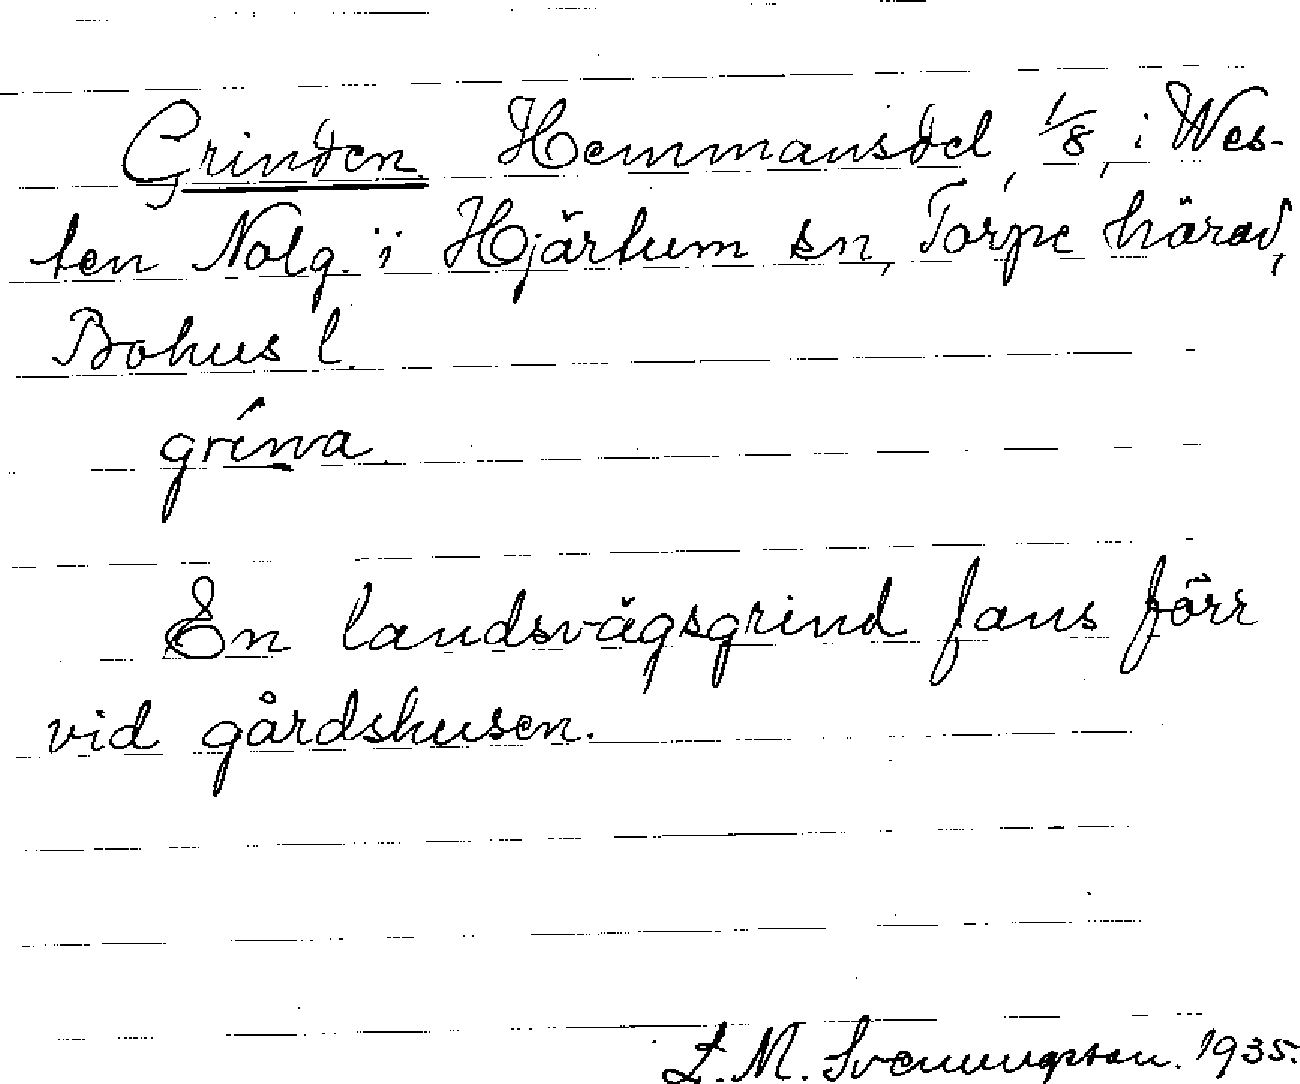 Grinden Hemmansdel, 1/8, i Wes-
ten Nolg. i Hjärtum sn, Torpe härad,
Bohus l.
grínna
En landsvägsgrind fans förr
vid gårdshusen.
L. M. Svenungsson. 1935.